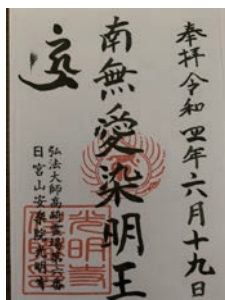 奉拝 令和四年六月十九日
南無愛染明王
弘法大師高崎霊場第六番
日宮山安楽院光明寺
光明寺